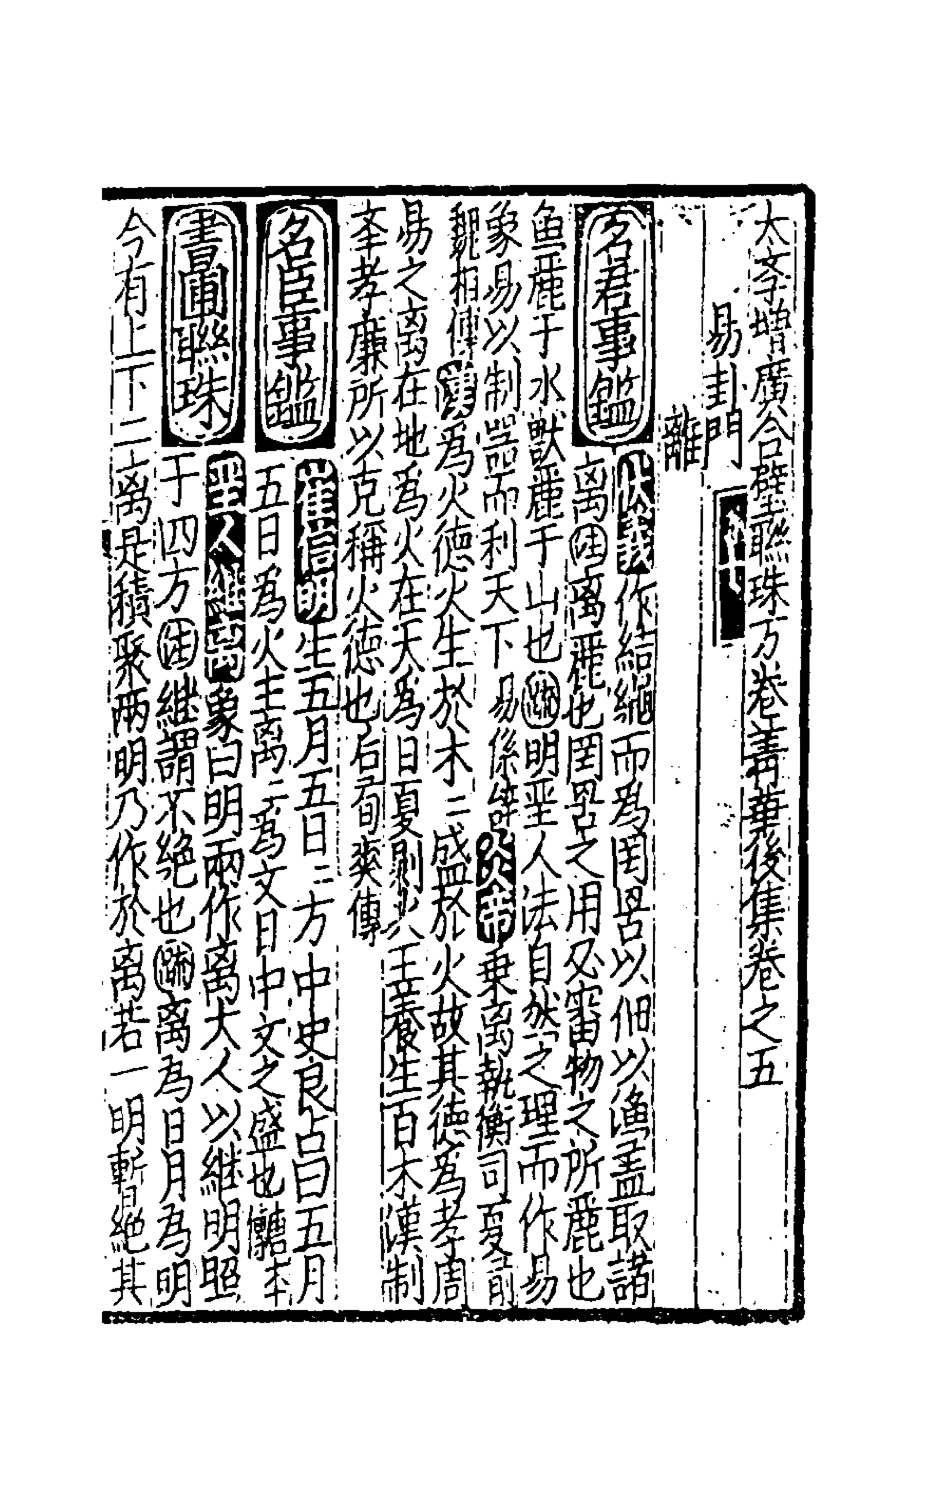 太學增廣合璧聯珠万卷菁華後集卷之五
易卦門
離
名君事鑑
伏羲作結繩而為罔罟以佃以漁盖取諸
离注离麗也罔罟之用必審物之所麗也
魚麗于水獸麗于山也疏明圣人法自然之理而作易
象易以制噐而利天下易係辞炎帝乗离執衡司夏前
魏相傳漢為火德火生於木二盛於火故其德為孝周
易之离在地為火在天為日夏則火王養生百木漢制
李孝廉所以克稱火德也右荀爽傳
名臣事鑑
崔信明生五月五日二方中史良占曰五月
五日為火主离二為文日中文之盛也
書圃聯珠
圣人継离象曰明兩作离大人以継明照
于四方注継謂不絶也疏离為日月為明
今有上下二离是積聚兩明乃作於离若一明暫絶其